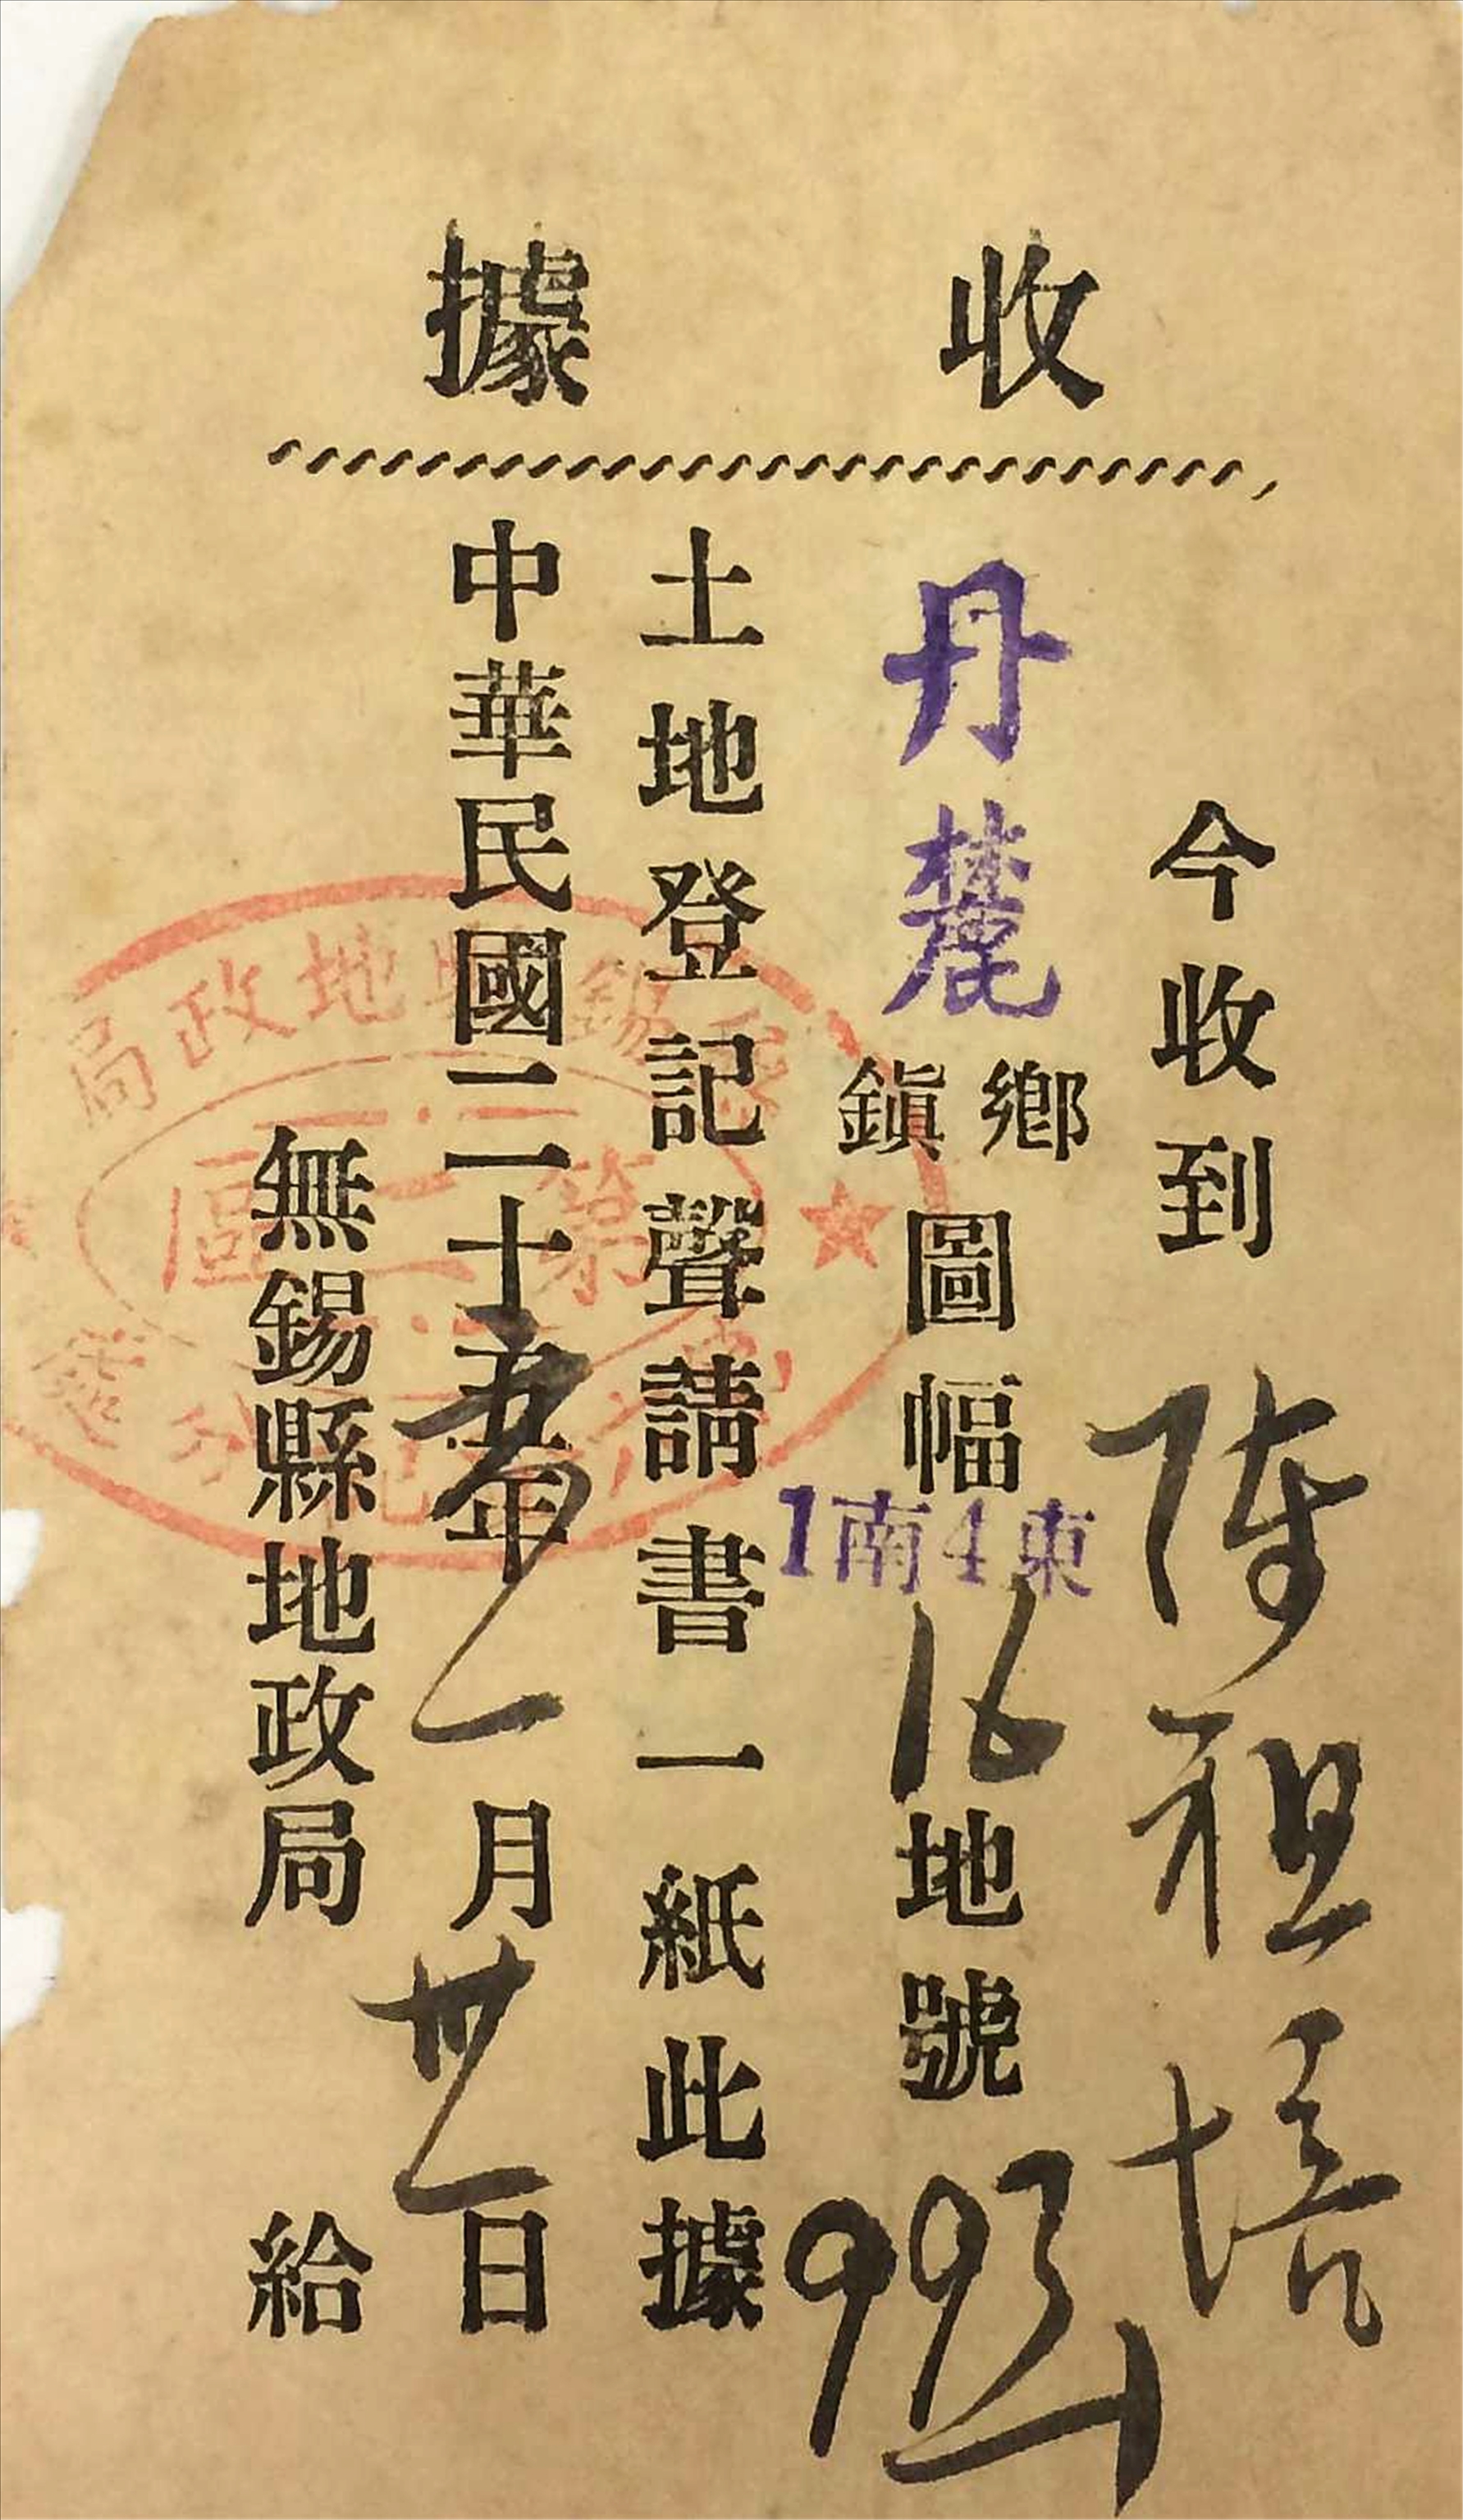 收據
今收到 陳祖培
丹麓鄉鎮圖幅東4南1 16地號993
土地登記聲請書一紙此據
中華民國二十五年一月卅一日
無錫縣地政局 給
無錫縣地政局
第二區